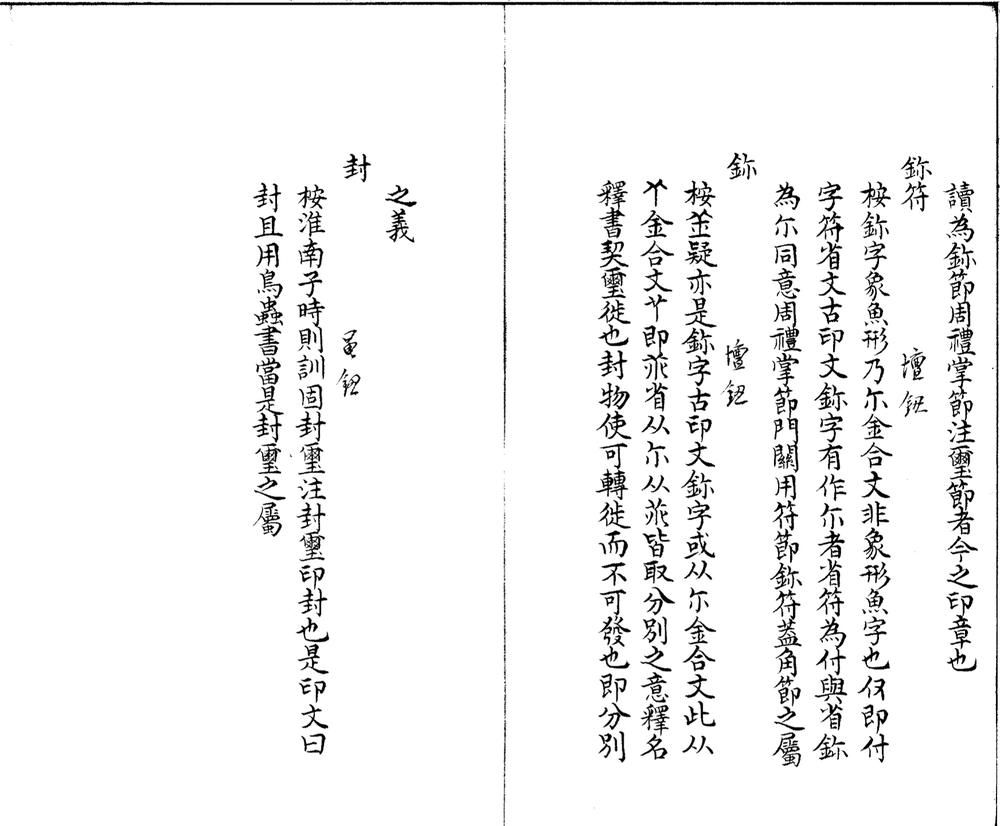 讀為鉩節周禮掌節注璽節者今之印章也
鉩符　壇鈕
桉鉩字象魚形乃尒金合文非象形魚字也㐰即付
字符省文古印文鉩字有作尒者省符為付與省鉩
為尒同意周禮掌節門關用符節鉩符蓋角節之屬
鉩　壇鈕
桉疑亦是鉩字古印文鉩字或从尒金合文此从
金合文即省从尒从皆取分別之意釋名
釋書契璽徙也封物使可轉徙而不可發也即分別
之義
封　鈕
桉淮南子時則訓固封璽注封璽印封也是印文曰
封且用鳥蟲書當是封璽之屬